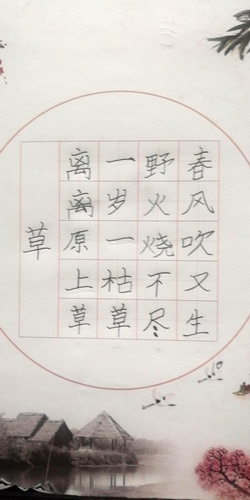 草
离离原上草
一岁一枯草
野火烧不尽
春风吹又生